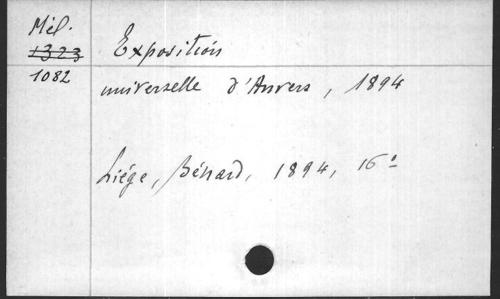 Mél.
1323
1082
Exposition
universelle d'Anvers, 1894
Liége, Bénard, 1894, 16°